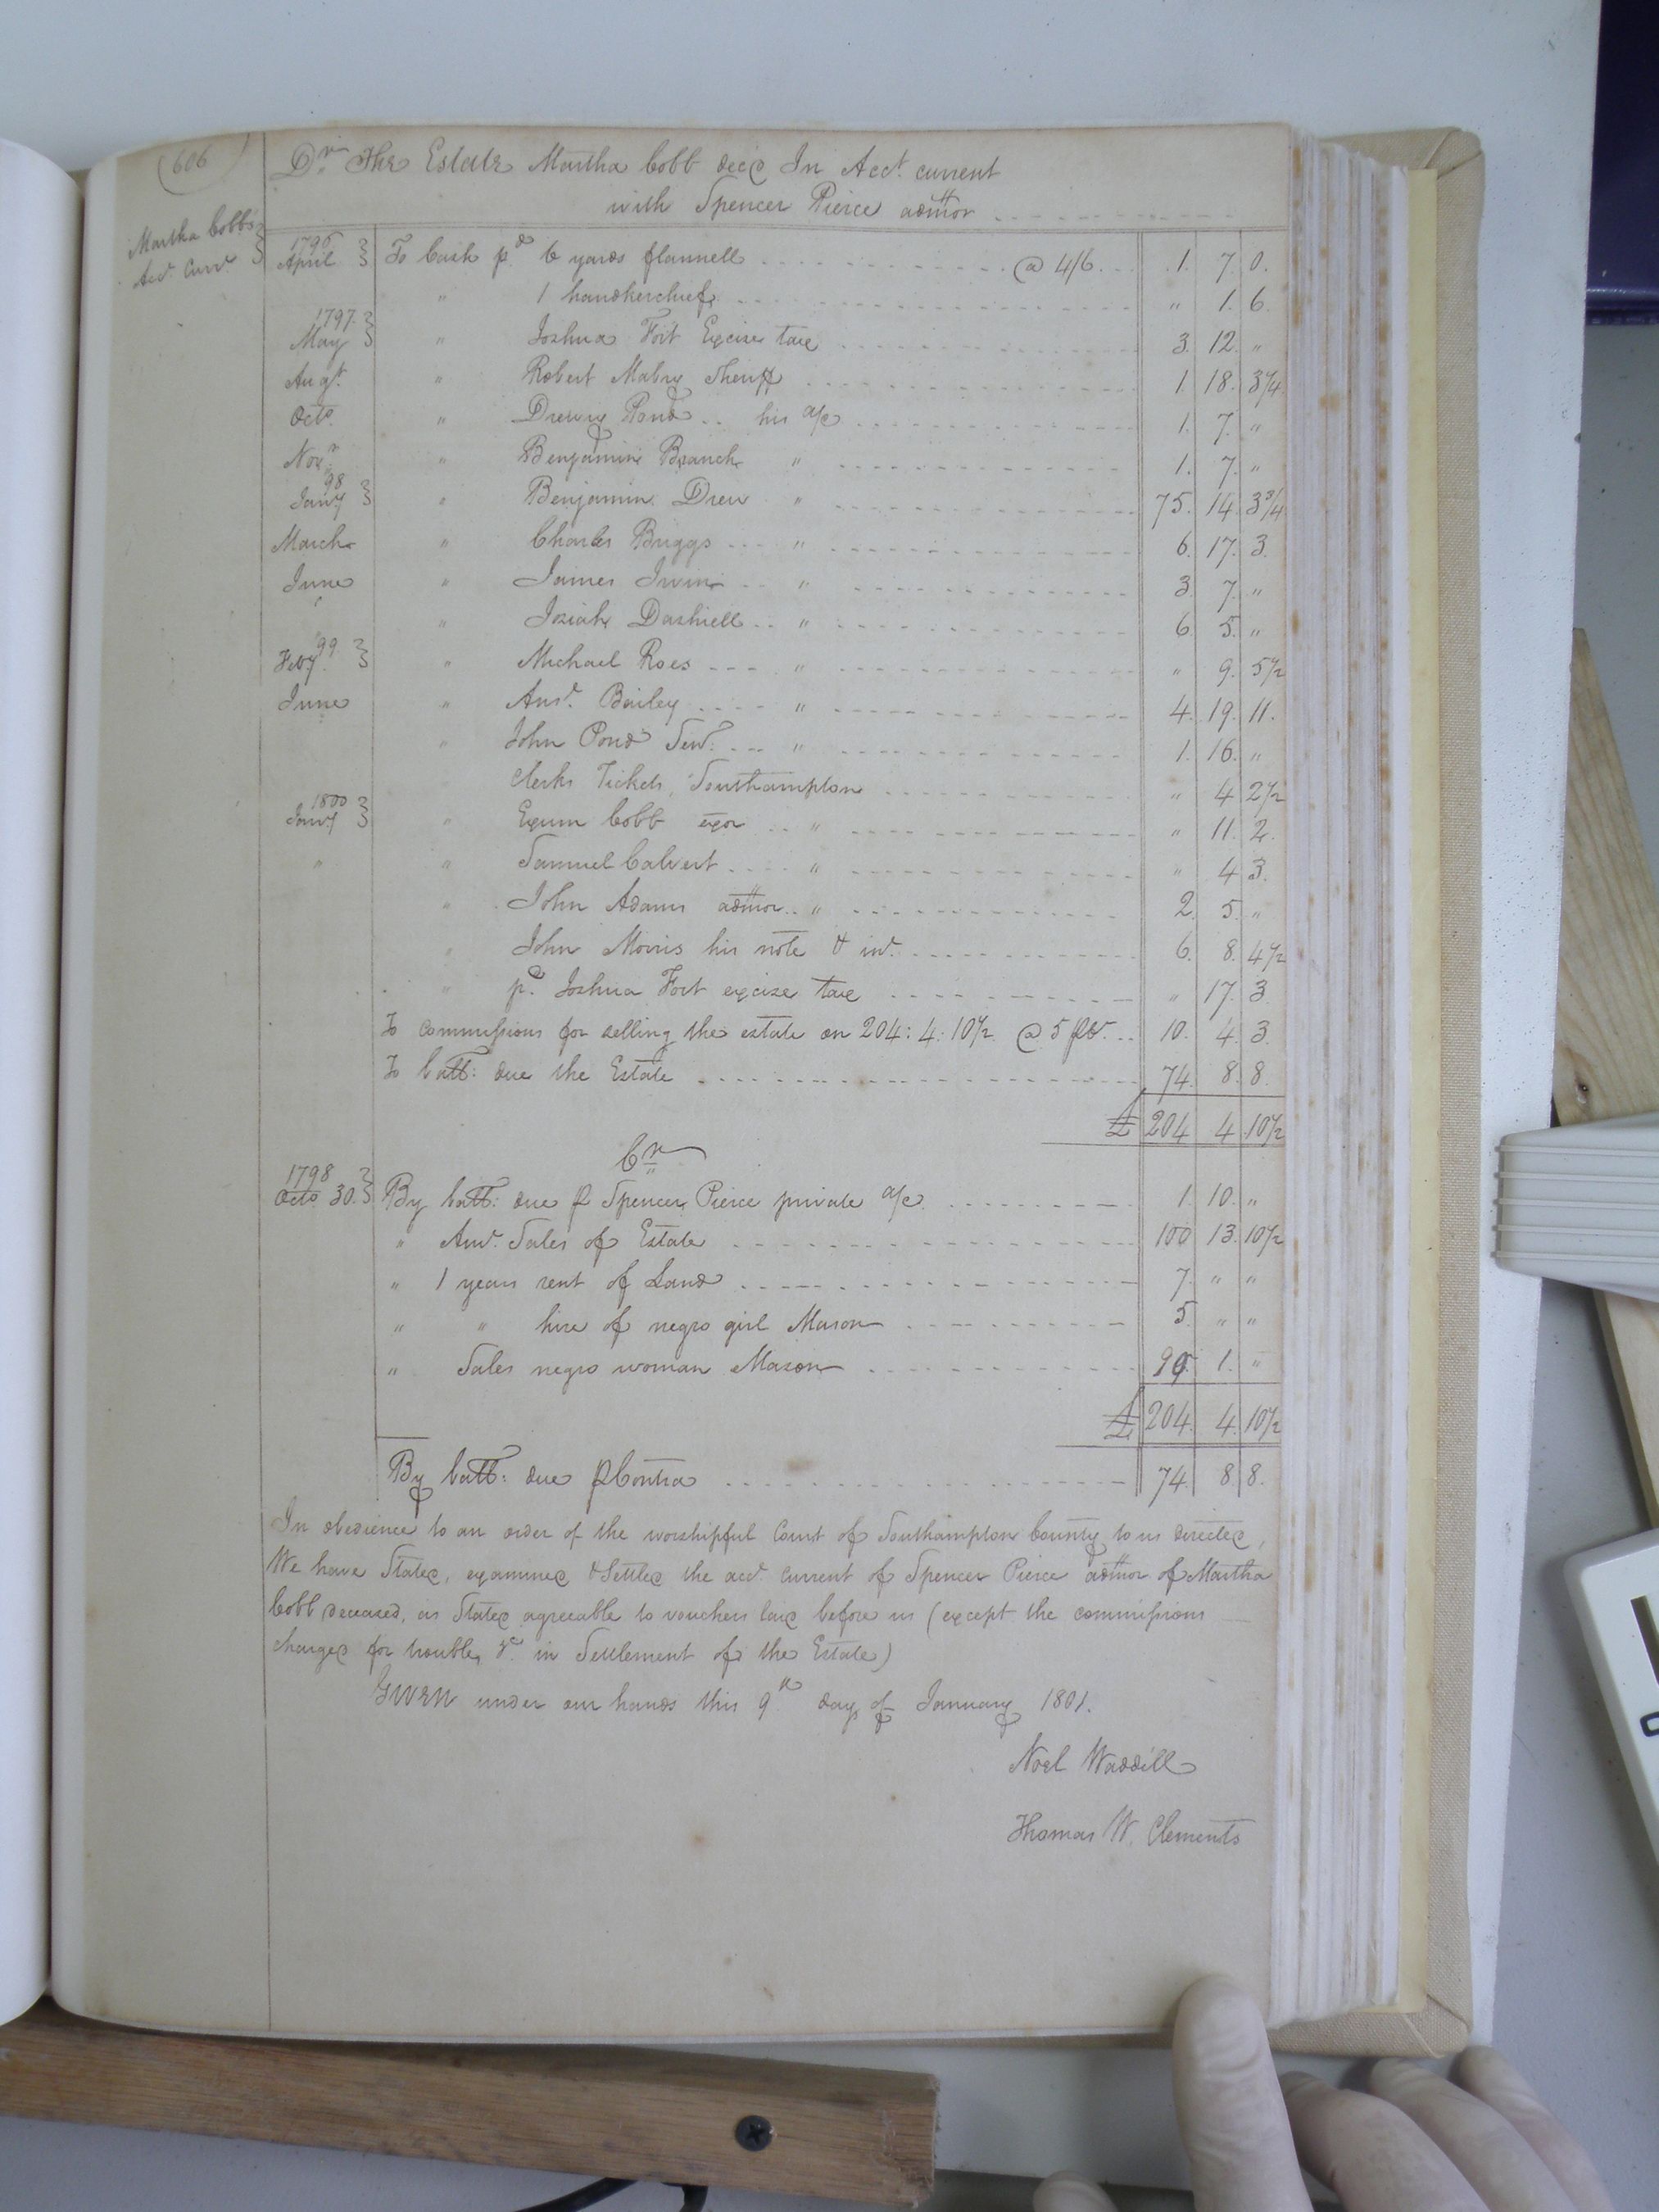 (606)
Dr The Estate Martha Cobb decd In Acct. current
with Spencer Pierce admor
Martha Cobb's
Act. Curr.
1796
April To Cash pd 6 yards flannell @ 4/6 1. 7. 0.
" 1 handkerchief " 1. 6.
1797.
May " Joshua Fort Excise tax 3. 12. "
Augt. " Robert Mabry Sheriff 1. 18. 3 1/4
Octo. " Drewry Pond .. his a/c 1. 7. "
Novr. " Benjamin Branch " 1. 7. "
98
Jany " Benjamin Drew " 75. 14. 3 3/4
March " Charles Briggs " 6. 17. 3.
June " James Irwin " 3. 7. "
" " Josiah Dashiell " 6. 5. "
99
Feby. " Michael Roes " " 9. 5 1/2
June " Bailey " 4. 19. 11.
" John Pond Senr. " 1. 16. "
" Clerks Tickets, Southampton " 4 2 1/2
1800
Jany " Exum Cobb exor " " 11. 2.
" " Samuel Calvert " " 4 3.
" John Adams admor " 2. 5. "
" John Morris his note & int. 6. 8. 4 1/2
" pd. Joshua Fort excise tax " 17. 3
To commissions for selling the estate on 204: 4: 10 1/2 @ 5 pCt. 10. 4. 3.
To Ball: due the Estate 74. 8. 8.
£ 204 4 10 1/2
Cr
1798
Octo 30. By Ball: due p Spencer Pierce private a/c 1. 10. "
" Amt. Sales of Estate 100 13. 10 1/2
" 1 years rent of Land 7. " "
" " hire of negro girl Mason 5. " "
" Sales negro woman Mason 90. 1. "
£ 204. 4. 10 1/2
By ball: due p Contra 74. 8. 8.
In obedience to an order of the worshipful Court of Southampton County to us directed,
We have Stated, examined & Settled the act. current of Spencer Pierce admor of Martha
Cobb deceased, as Stated agreeable to vouchers laid before us (except the commissions
charged for trouble, &c. in Settlement of the Estate)
GIVEN under our hands this 9th day of January 1801.
Noel Waddill
Thomas W. Clements